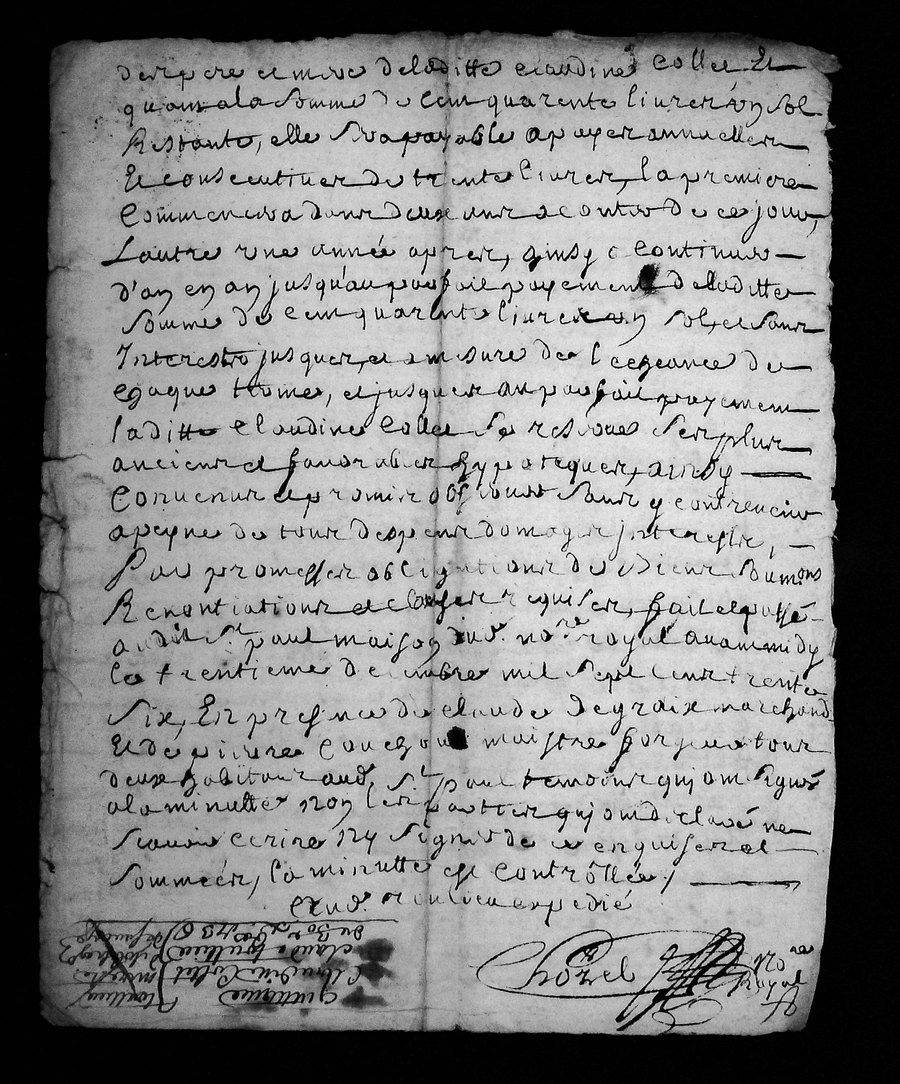 des pere et mere de laditte Claudine Collet Et
quant a la somme de Cent quarente livres un sol
Restante, elle sera payable a payes annuelles
Et consecutives de trente livres, la premiere
Commencera dans deux ans a conter de ce jour,
L'autre une année apres, ainsy a continuer
d'an en an jusqu'au parfait payement de laditte
somme de Cent quarente livres un sol, et sans
Interestz jusques, et a mesure de l'echeance de
chaque terme, et jusques au parfait payement
laditte Claudine Collet se reserve ses plus
anciens et favorables hypoteques, ainsy
Convenus et promis observer sans y contrevenir
a peyne de tous despens domages jnterestz,
Par promesses obligations de biens Soumons
Renontiations et clauses requises, fait et passé
audit St paul maison dud. nore royal avant midy
le trentieme decembre mil sept cens trente
six, En presence de claude Degraix marchand
Et de pierre Couchoud maistre forgeur tous
deux habitans aud. St Paul temoins qui ont signé
a la minutte non les parties qui ont declaré ne
scavoir ecrire ny signer de ce enquises et
sommées, la minutte est Controllée /
expedié
Chözel nore
Royal
quittance
Claudine Collet
a claude
du 30e xbre 1736